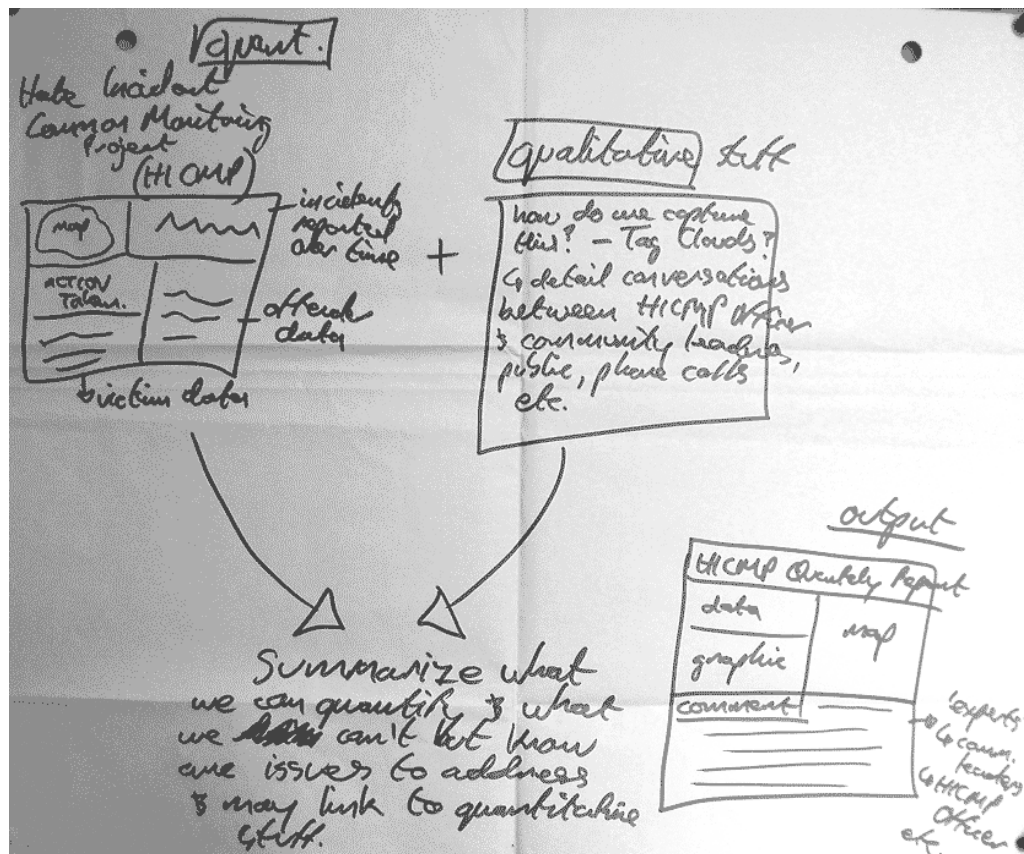 quant.
Hate Incident
Common Monitoring
Project
(HICMP)
map
incidents
reported
over time
ACTION
Taken.
offender
data
victim data
+
qualitative stuff
how do we capture
this? – Tag Clouds?
↳ detail conversations
between HICMP Officer
& community leaders,
public, phone calls
etc.
Summarize what
we can quantify & what
we can't but know
are issues to address
& may link to quantitative
stuff.
output
HICMP Quartely Report
data
map
graphic
comment
experts
↳ comm.
leaders
↳ HICMP
Officer
etc.